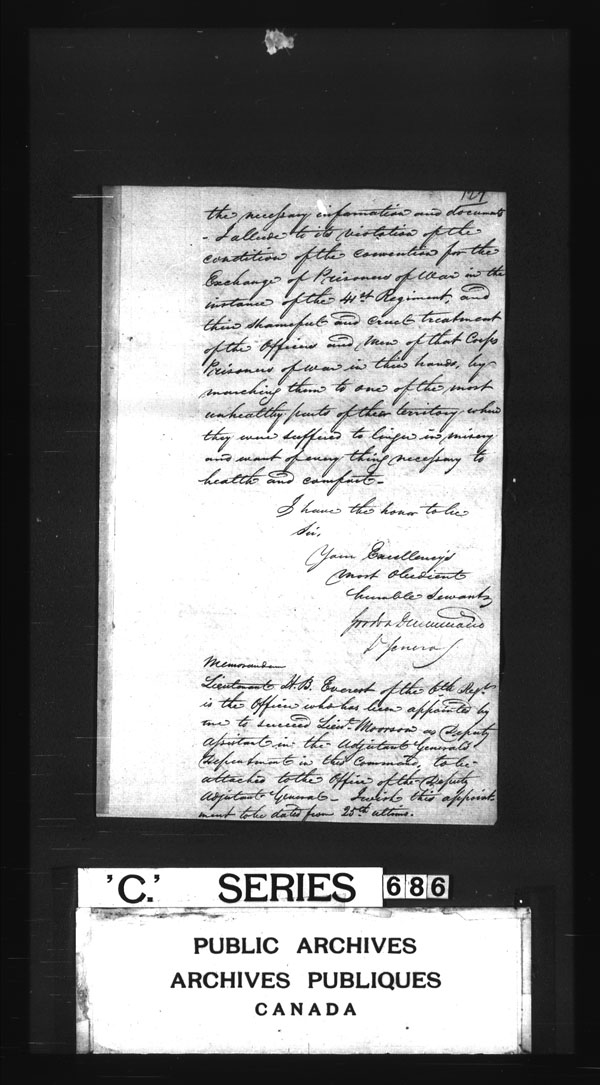 127
the necessary information and documents
- I allude to its violation of the
condition of the convention for the
Exchange of Prisoners of War in the
instance of the 41st Regiment, and
their shameful and cruel treatment
of the Officers and Men of that Corps
Prisoners of war in their hands, by
marching them to one of the most
unhealthy parts of their territory where
they were suffered to linger in misery
and want of every thing necessary to
health and comfort -
I have the honor to be
Sir,
Your Excellency's
most obedient
humble Servant
Gordon Drummond
Lt General
Memorandum
Lieutenant H. B. Everest of the 6th Regt
is the Officer who has been appointed by
me to succeed Lieut. Moorson as Deputy
Assistant in the Adjutant General's
Department in this Command, to be
attached to the Office of the Deputy
Adjutant General - I wish this appoint
ment to be dated from 25th ultimo.
'C.' SERIES 686
PUBLIC ARCHIVES
ARCHIVES PUBLIQUES
CANADA